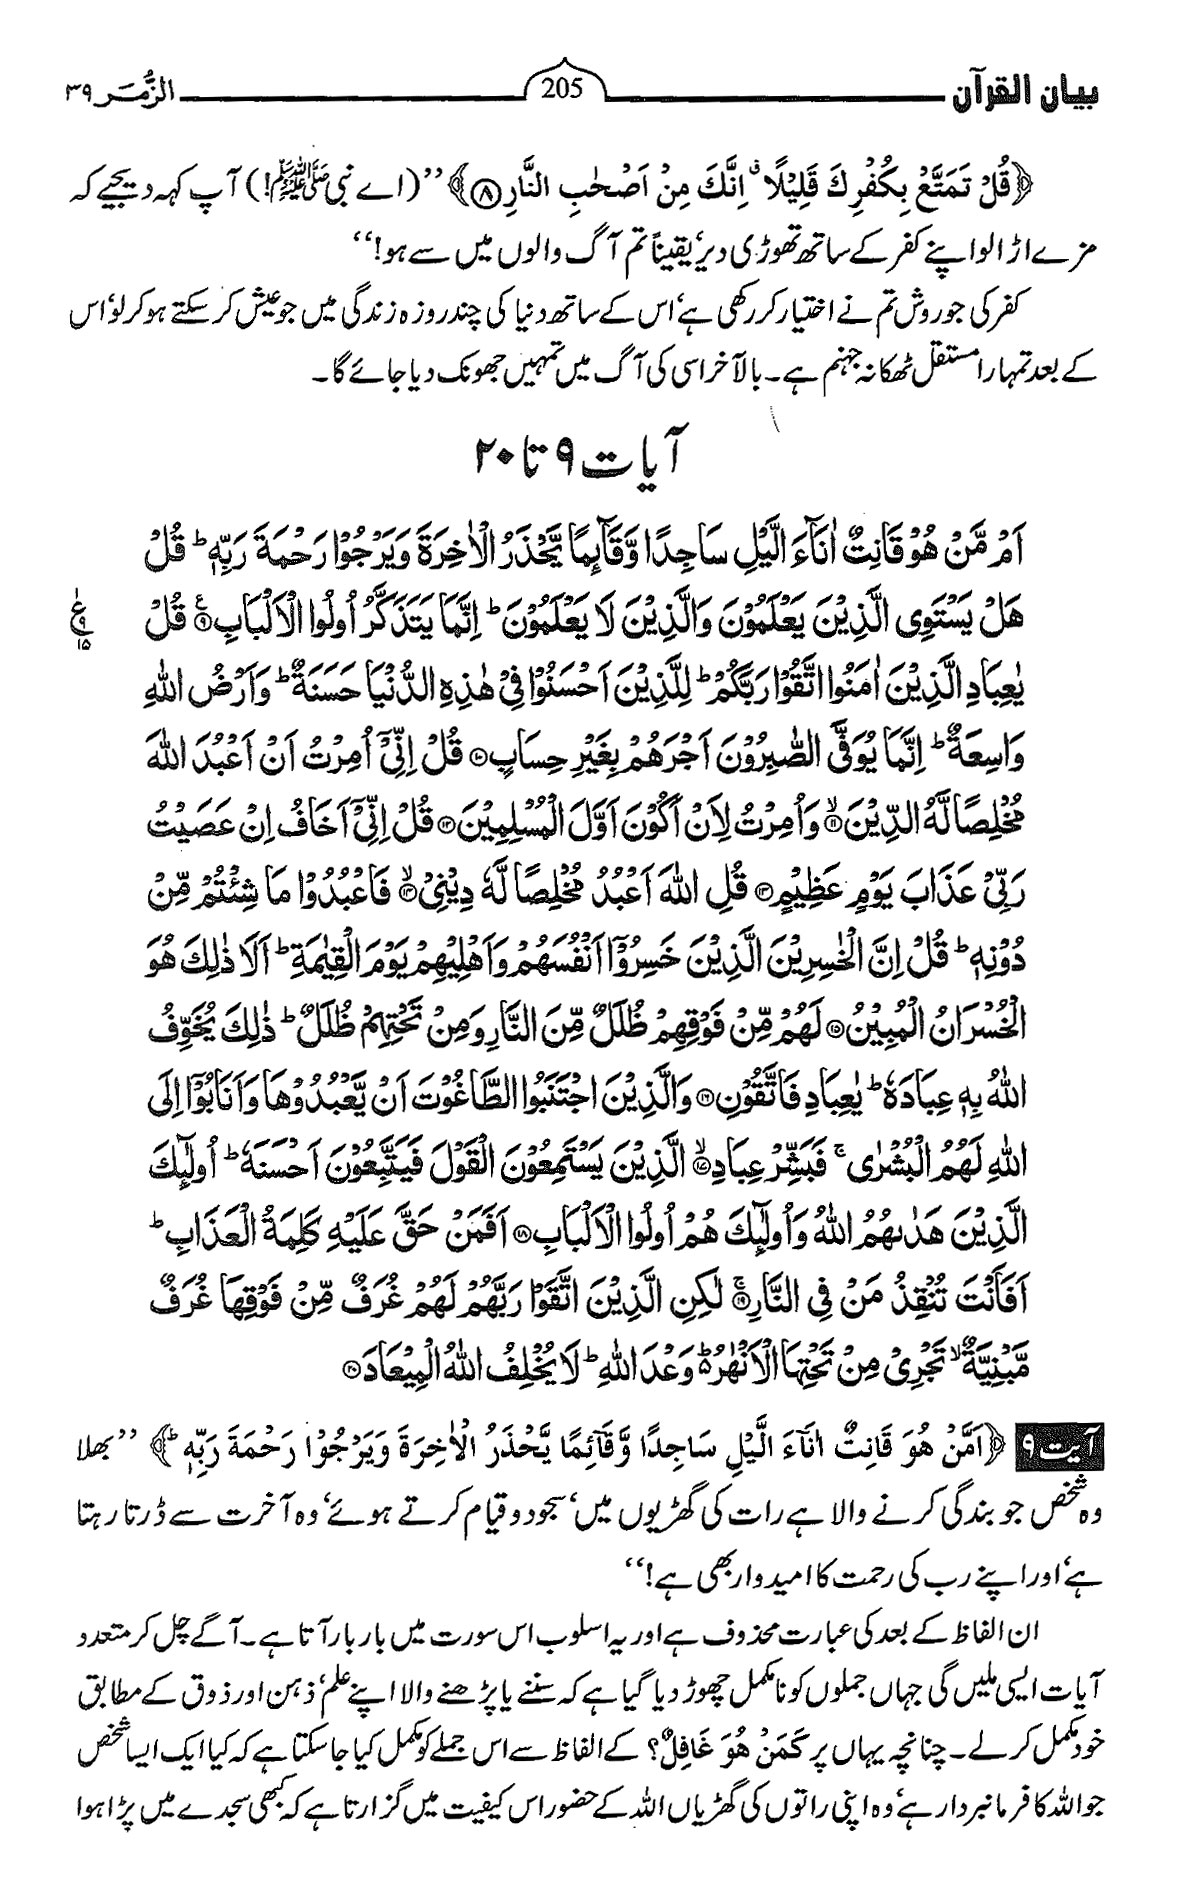 بیان القرآن 205 الزُّمَر ۳۹
﴿قُلْ تَمَتَّعْ بِكُفْرِكَ قَلِيْلًا ۖ اِنَّكَ مِنْ اَصْحٰبِ النَّارِ ۸﴾ ’’(اے نبی ﷺ!) آپ کہہ دیجیے کہ
مزے اڑا لو اپنے کفر کے ساتھ تھوڑی دیر‘ یقیناً تم آگ والوں میں سے ہو!‘‘
کفر کی جو روش تم نے اختیار کر رکھی ہے‘ اس کے ساتھ دنیا کی چند روزہ زندگی میں جو عیش کر سکتے ہو کر لو‘ اس
کے بعد تمہارا مستقل ٹھکانہ جہنم ہے۔ بالآخر اسی کی آگ میں تمہیں جھونک دیا جائے گا۔
آیات ۹ تا ۲۰
اَمَّنْ هُوَ قَانِتٌ اٰنَآءَ الَّيْلِ سَاجِدًا وَّقَآئِمًا يَّحْذَرُ الْاٰخِرَةَ وَيَرْجُوْا رَحْمَةَ رَبِّهٖ ؕ قُلْ
هَلْ يَسْتَوِى الَّذِيْنَ يَعْلَمُوْنَ وَالَّذِيْنَ لَا يَعْلَمُوْنَ ؕ اِنَّمَا يَتَذَكَّرُ اُولُوا الْاَلْبَابِ ۹ قُلْ
ع ۹ ۱۵
يٰعِبَادِ الَّذِيْنَ اٰمَنُوا اتَّقُوْا رَبَّكُمْ ؕ لِلَّذِيْنَ اَحْسَنُوْا فِيْ هٰذِهِ الدُّنْيَا حَسَنَةٌ ؕ وَاَرْضُ اللّٰهِ
وَاسِعَةٌ ؕ اِنَّمَا يُوَفَّى الصّٰبِرُوْنَ اَجْرَهُمْ بِغَيْرِ حِسَابٍ ۱۰ قُلْ اِنِّيْٓ اُمِرْتُ اَنْ اَعْبُدَ اللّٰهَ
مُخْلِصًا لَّهُ الدِّيْنَ ۱۱ وَاُمِرْتُ لِاَنْ اَكُوْنَ اَوَّلَ الْمُسْلِمِيْنَ ۱۲ قُلْ اِنِّيْٓ اَخَافُ اِنْ عَصَيْتُ
رَبِّيْ عَذَابَ يَوْمٍ عَظِيْمٍ ۱۳ قُلِ اللّٰهَ اَعْبُدُ مُخْلِصًا لَّهٗ دِيْنِيْ ۱۴ فَاعْبُدُوْا مَا شِئْتُمْ مِّنْ
دُوْنِهٖ ؕ قُلْ اِنَّ الْخٰسِرِيْنَ الَّذِيْنَ خَسِرُوْٓا اَنْفُسَهُمْ وَاَهْلِيْهِمْ يَوْمَ الْقِيٰمَةِ ؕ اَلَا ذٰلِكَ هُوَ
الْخُسْرَانُ الْمُبِيْنُ ۱۵ لَهُمْ مِّنْ فَوْقِهِمْ ظُلَلٌ مِّنَ النَّارِ وَمِنْ تَحْتِهِمْ ظُلَلٌ ؕ ذٰلِكَ يُخَوِّفُ
اللّٰهُ بِهٖ عِبَادَهٗ ؕ يٰعِبَادِ فَاتَّقُوْنِ ۱۶ وَالَّذِيْنَ اجْتَنَبُوا الطَّاغُوْتَ اَنْ يَّعْبُدُوْهَا وَاَنَابُوْٓا اِلَى
اللّٰهِ لَهُمُ الْبُشْرٰى ۚ فَبَشِّرْ عِبَادِ ۱۷ الَّذِيْنَ يَسْتَمِعُوْنَ الْقَوْلَ فَيَتَّبِعُوْنَ اَحْسَنَهٗ ؕ اُولٰٓئِكَ
الَّذِيْنَ هَدٰىهُمُ اللّٰهُ وَاُولٰٓئِكَ هُمْ اُولُوا الْاَلْبَابِ ۱۸ اَفَمَنْ حَقَّ عَلَيْهِ كَلِمَةُ الْعَذَابِ ؕ
اَفَاَنْتَ تُنْقِذُ مَنْ فِي النَّارِ ۱۹ لٰكِنِ الَّذِيْنَ اتَّقَوْا رَبَّهُمْ لَهُمْ غُرَفٌ مِّنْ فَوْقِهَا غُرَفٌ
مَّبْنِيَّةٌ ۙ تَجْرِيْ مِنْ تَحْتِهَا الْاَنْهٰرُ ؕ وَعْدَ اللّٰهِ ؕ لَا يُخْلِفُ اللّٰهُ الْمِيْعَادَ ۲۰
آیت ۹ ﴿اَمَّنْ هُوَ قَانِتٌ اٰنَآءَ الَّيْلِ سَاجِدًا وَّقَآئِمًا يَّحْذَرُ الْاٰخِرَةَ وَيَرْجُوْا رَحْمَةَ رَبِّهٖ ؕ﴾ ’’بھلا
وہ شخص جو بندگی کرنے والا ہے رات کی گھڑیوں میں‘ سجود و قیام کرتے ہوئے‘ وہ آخرت سے ڈرتا رہتا
ہے‘ اور اپنے رب کی رحمت کا امیدوار بھی ہے!‘‘
ان الفاظ کے بعد کی عبارت محذوف ہے اور یہ اسلوب اس سورت میں بار بار آتا ہے۔ آگے چل کر متعدد
آیات ایسی ملیں گی جہاں جملوں کو نامکمل چھوڑ دیا گیا ہے کہ سننے یا پڑھنے والا اپنے علم‘ ذہن اور ذوق کے مطابق
خود مکمل کر لے۔ چنانچہ یہاں پر كَمَنْ هُوَ غَافِلٌ؟ کے الفاظ سے اس جملے کو مکمل کیا جا سکتا ہے کہ کیا ایک ایسا شخص
جو اللہ کا فرمانبردار ہے‘ وہ اپنی راتوں کی گھڑیاں اللہ کے حضور اس کیفیت میں گزارتا ہے کہ کبھی سجدے میں پڑا ہوا